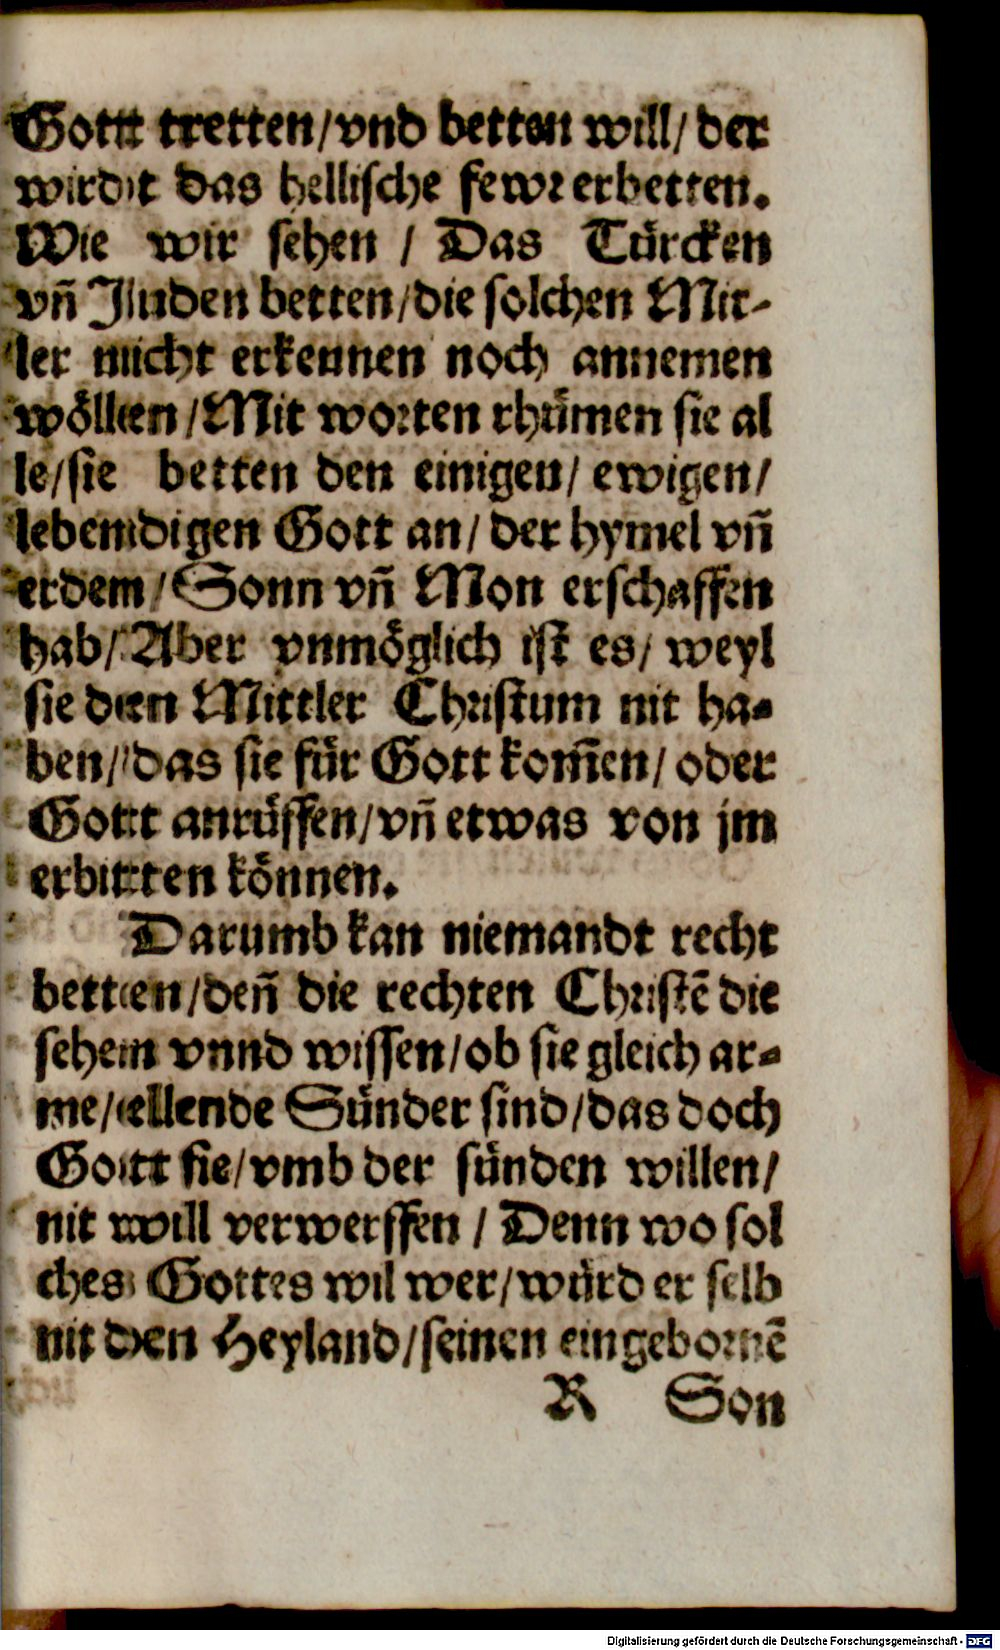 Gott tretten/vnd betten will/ der
wirdt das hellische fewr erbetten.
Wie wir sehen / Das Türcken
vñ Juden betten/die solchen Mit-
ler nicht erkennen noch annemen
wöllen/Mit worten rhümen sie al
le/sie betten den einigen/ ewigen/
lebendigen Gott an/ der hymel vñ
erden/Sonn vñ Mon erschaffen
hab/ Aber vnmöglich ist es/ weyl
sie den Mittler Christum nit ha-
ben/ das sie für Gott kom̃en/ oder
Gott anrüffen/vñ etwas von jm
erbitten können.
Darumb kan niemandt recht
betten/deñ die rechten Christẽ die
sehen vnnd wissen/ob sie gleich ar-
me/ellende Sünder sind/das doch
Gott sie/vmb der sünden willen/
nit will verwerffen / Denn wo sol
ches Gottes wil wer/würd er selb
nit den Heyland/seinen eingebornẽ
R Son
Digitalisierung gefördert durch die Deutsche Forschungsgemeinschaft - DFG